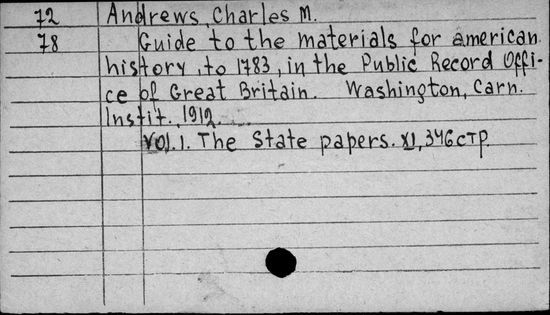 72 Andrews, Charles M.
78 Guide to the materials for american
history, to 1783, in the Public Record Offi-
ce of Great Britain. Washington, Carn.
Instit. 1912.
Vol. 1. The State papers. XI, 346 стр.